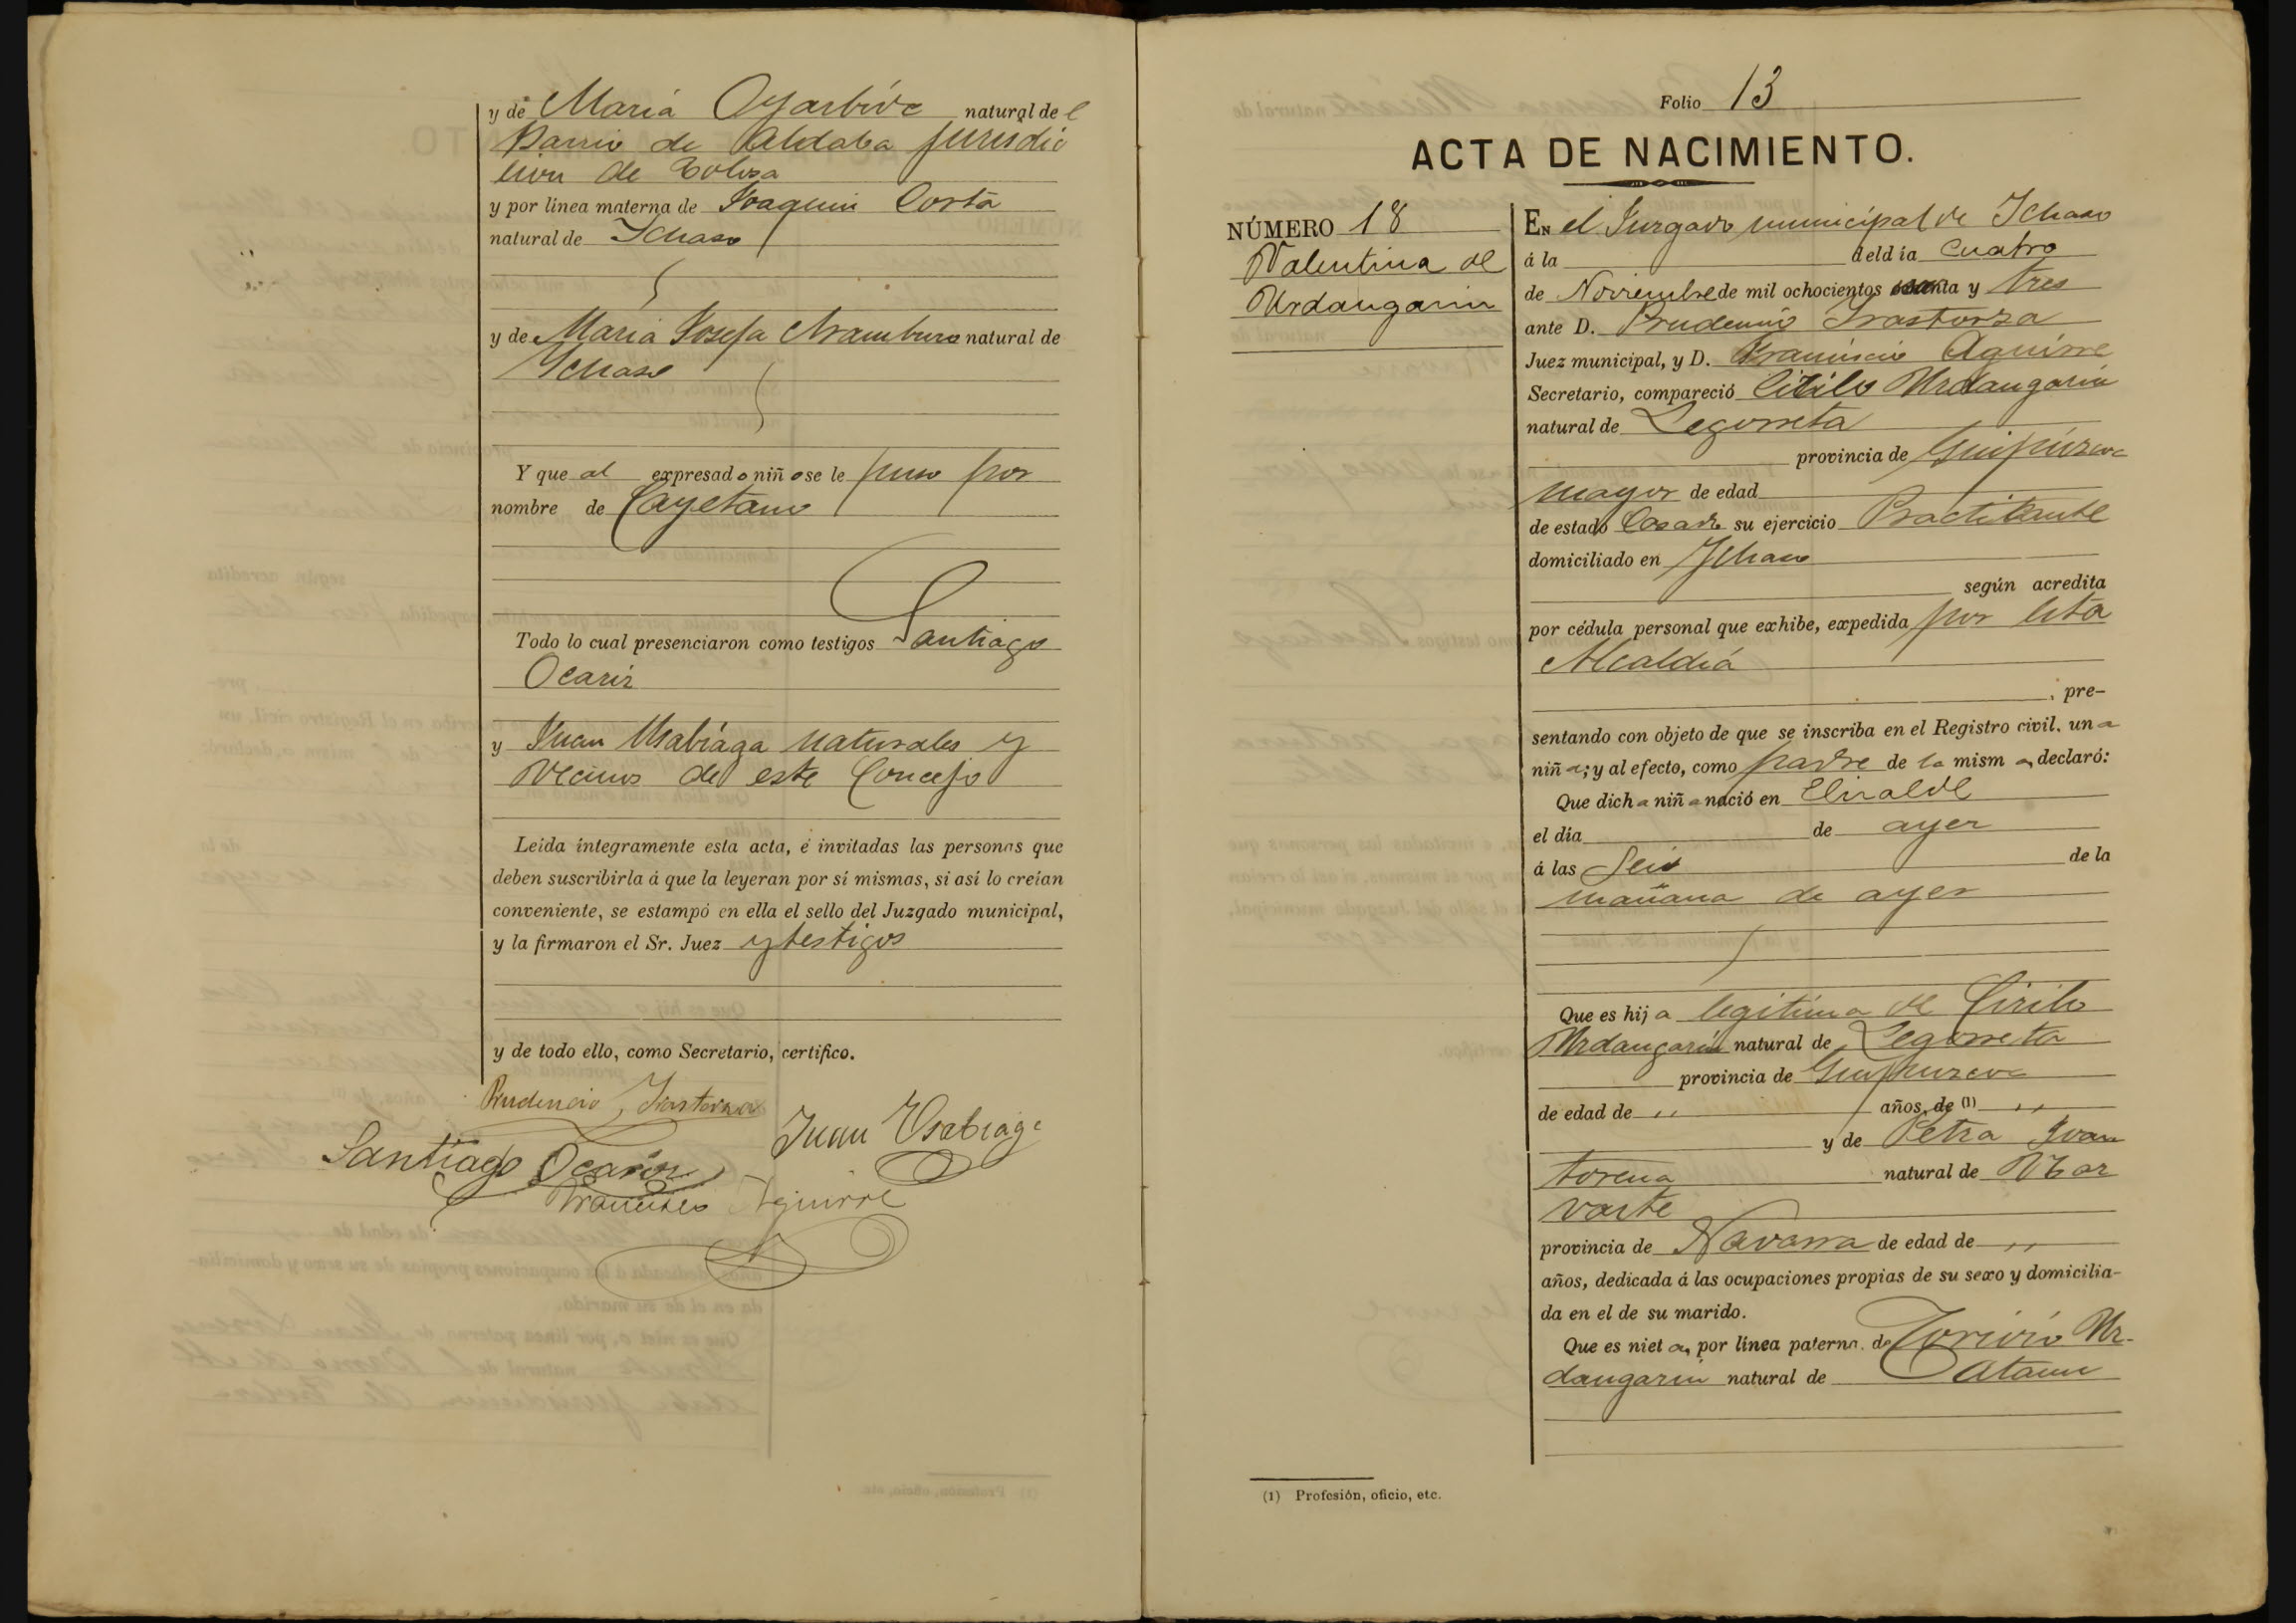 y de María Oyarbide natural de l
Barrio de Aldaba jurisdic
cion de Tolosa
y por línea materna de Joaquin Costa
natural de Ichaso
y de Maria Josefa Aramburu natural de
Ichaso
Y que al expresado niño se le puso por
nombre de Cayetano
Todo lo cual presenciaron como testigos Santiago
Ocariz
y Juan Usabiaga naturales y
vecinos de este Concejo
Leída íntegramente esta acta, é invitadas las personas que
deben suscribirla á que la leyeran por sí mismas, si así lo creían
conveniente, se estampó en ella el sello del Juzgado municipal,
y la firmaron el Sr. Juez y testigos
y de todo ello, como Secretario, certifico.
Prudencio Irastorza
Juan Usabiaga
Santiago Ocariz
Francisco Aguirre
Folio 13
ACTA DE NACIMIENTO.
NÚMERO 18
Valentina de
Urdangarin
En el Jurgado municipal de Ichaso
á la del día cuatro
de Noviembre de mil ochocientos y tres
ante D. Prudencio Irastorza
Juez municipal, y D. Francisco Aguirre
Secretario, compareció Cirilo Urdangarin
natural de Legorreta
provincia de Guipúzcoa
mayor de edad
de estado Casado su ejercicio Practicante
domiciliado en Ichaso
según acredita
por cédula personal que exhibe, expedida por esta
Alcaldiá
, pre-
sentando con objeto de que se inscriba en el Registro civil, una
niña; y al efecto, como padre de la misma, declaró:
Que dicha niña nació en Elizalde
el día de ayer
á las Seis de la
mañana de ayer
Que es hija legitima de Cirilo
Urdangarin natural de Legorreta
provincia de Guipuzcoa
de edad de ,, años, de (1) ,,
y de Petra Juan
torena natural de
provincia de Navarra de edad de ,,
años, dedicada á las ocupaciones propias de su sexo y domicilia-
da en el de su marido.
Que es nieta, por línea paterna, de Torivio Ur-
dangarin natural de Ataun
(1) Profesión, oficio, etc.